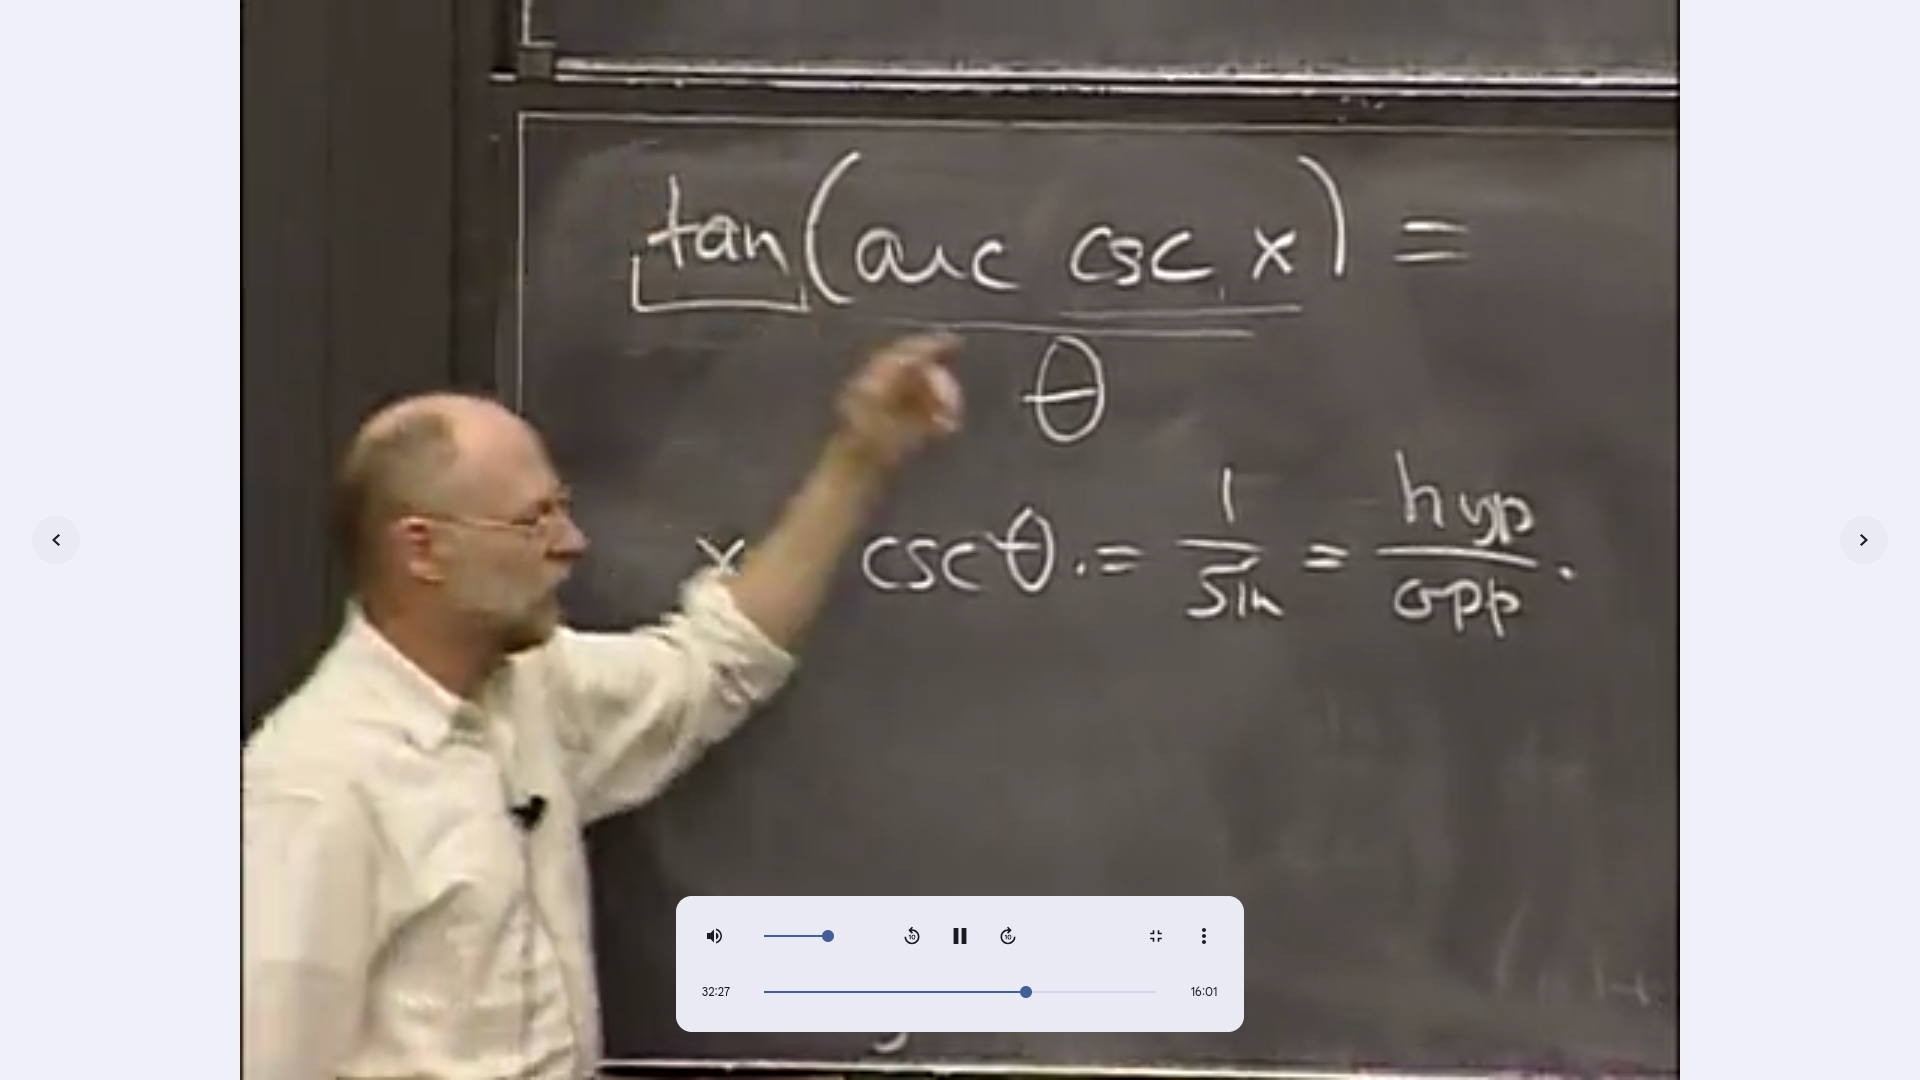 tan(arc csc x) =
θ
x csc θ. = 1/sin = hyp/opp.
32:27
16:01